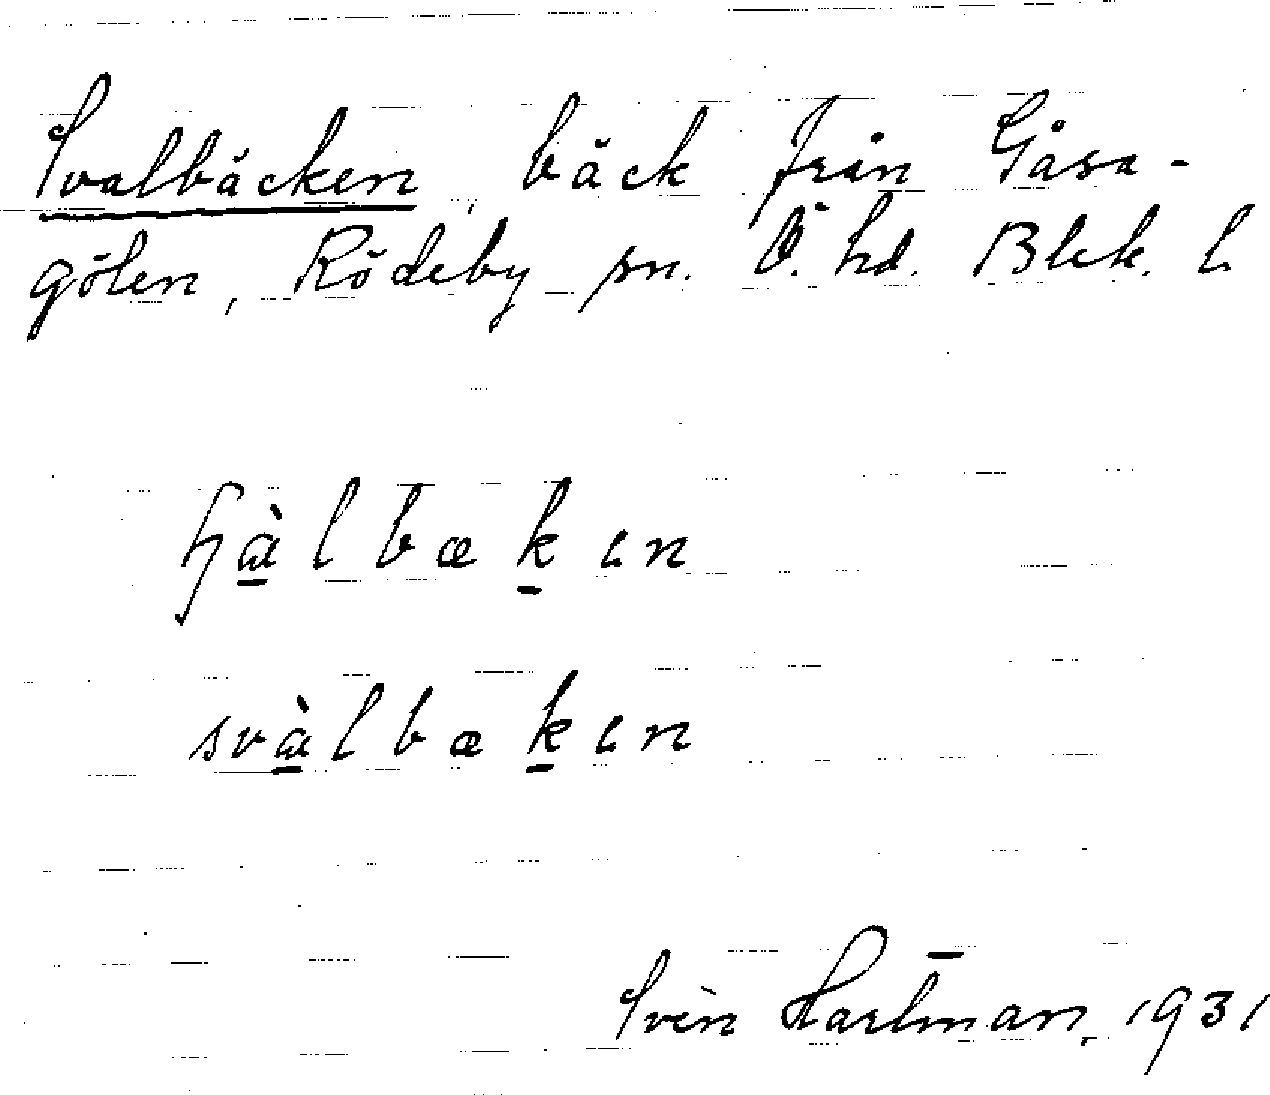 Svalbäcken, bäck från Gåsa-
gölen, Rödeby sn. Ö. hd. Blek. l.
svàlbækɩn
Svèn Hartman, 1931